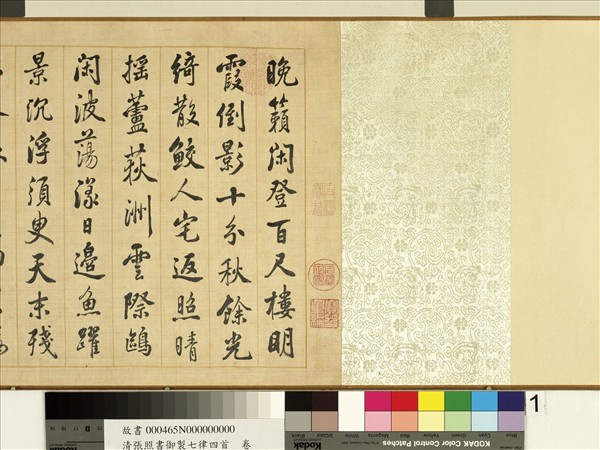 晚籟閑登百尺樓明
霞倒影十分秋餘光
綺散鮫人宅返照晴
搖蘆荻洲雲際鷗
閑波蕩漾日邊魚躍
景沉浮須臾天末殘
1
KODAK Color Control Patches
故書 000465N000000000
清張照書御製七律四首 卷